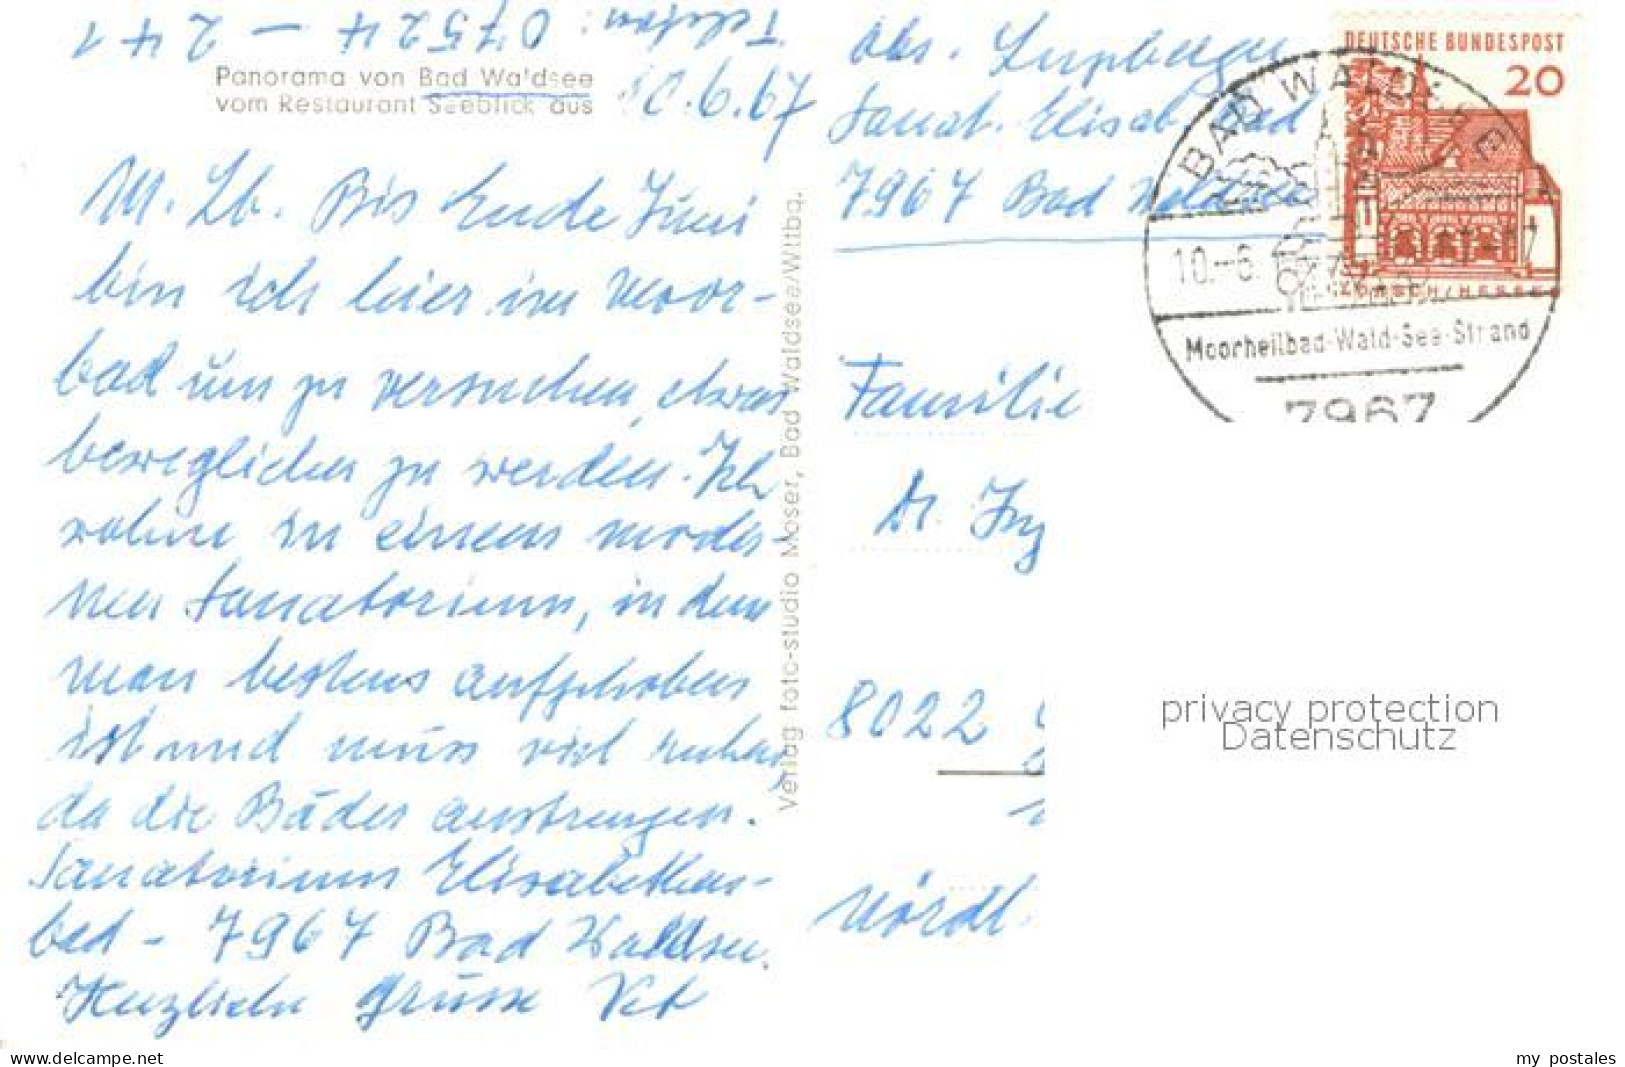 Telefon: 07524 - 241
Panorama von Bad Waldsee
vom Restaurant Seeblick aus
10.6.67
M. Lb. Bis Ende Juni
bin ich hier im Moor-
bad um zu versuchen, etwas
beweglicher zu werden. Ich
wohne in einem moder-
nen Sanatorium, in dem
man bestens aufgehoben
ist und muss viel ruhen,
da die Bäder anstrengen.
Sanatorium Elisabethen-
bad - 7967 Bad Waldsee.
Herzliche Grüsse
Verlag foto-studio Moser, Bad Waldsee/Wttbg.
Abs.
Sanat. Elisab. Bad
7967 Bad Waldsee
DEUTSCHE BUNDESPOST
20
LORSCH/HESSEN
BAD WALDSEE
10.-6.
Moorheilbad-Wald-See-Strand
7967
Familie
Dr.
8022
Nördl.
privacy protection
Datenschutz
www.delcampe.net
my_postales